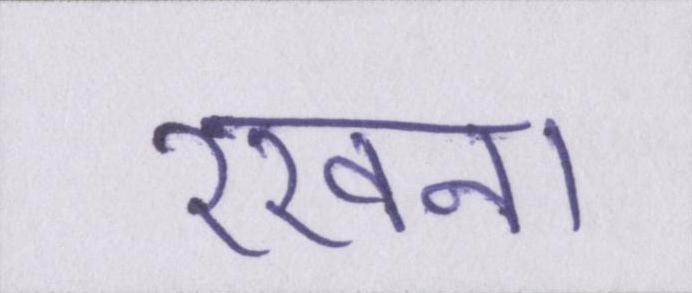 रखना